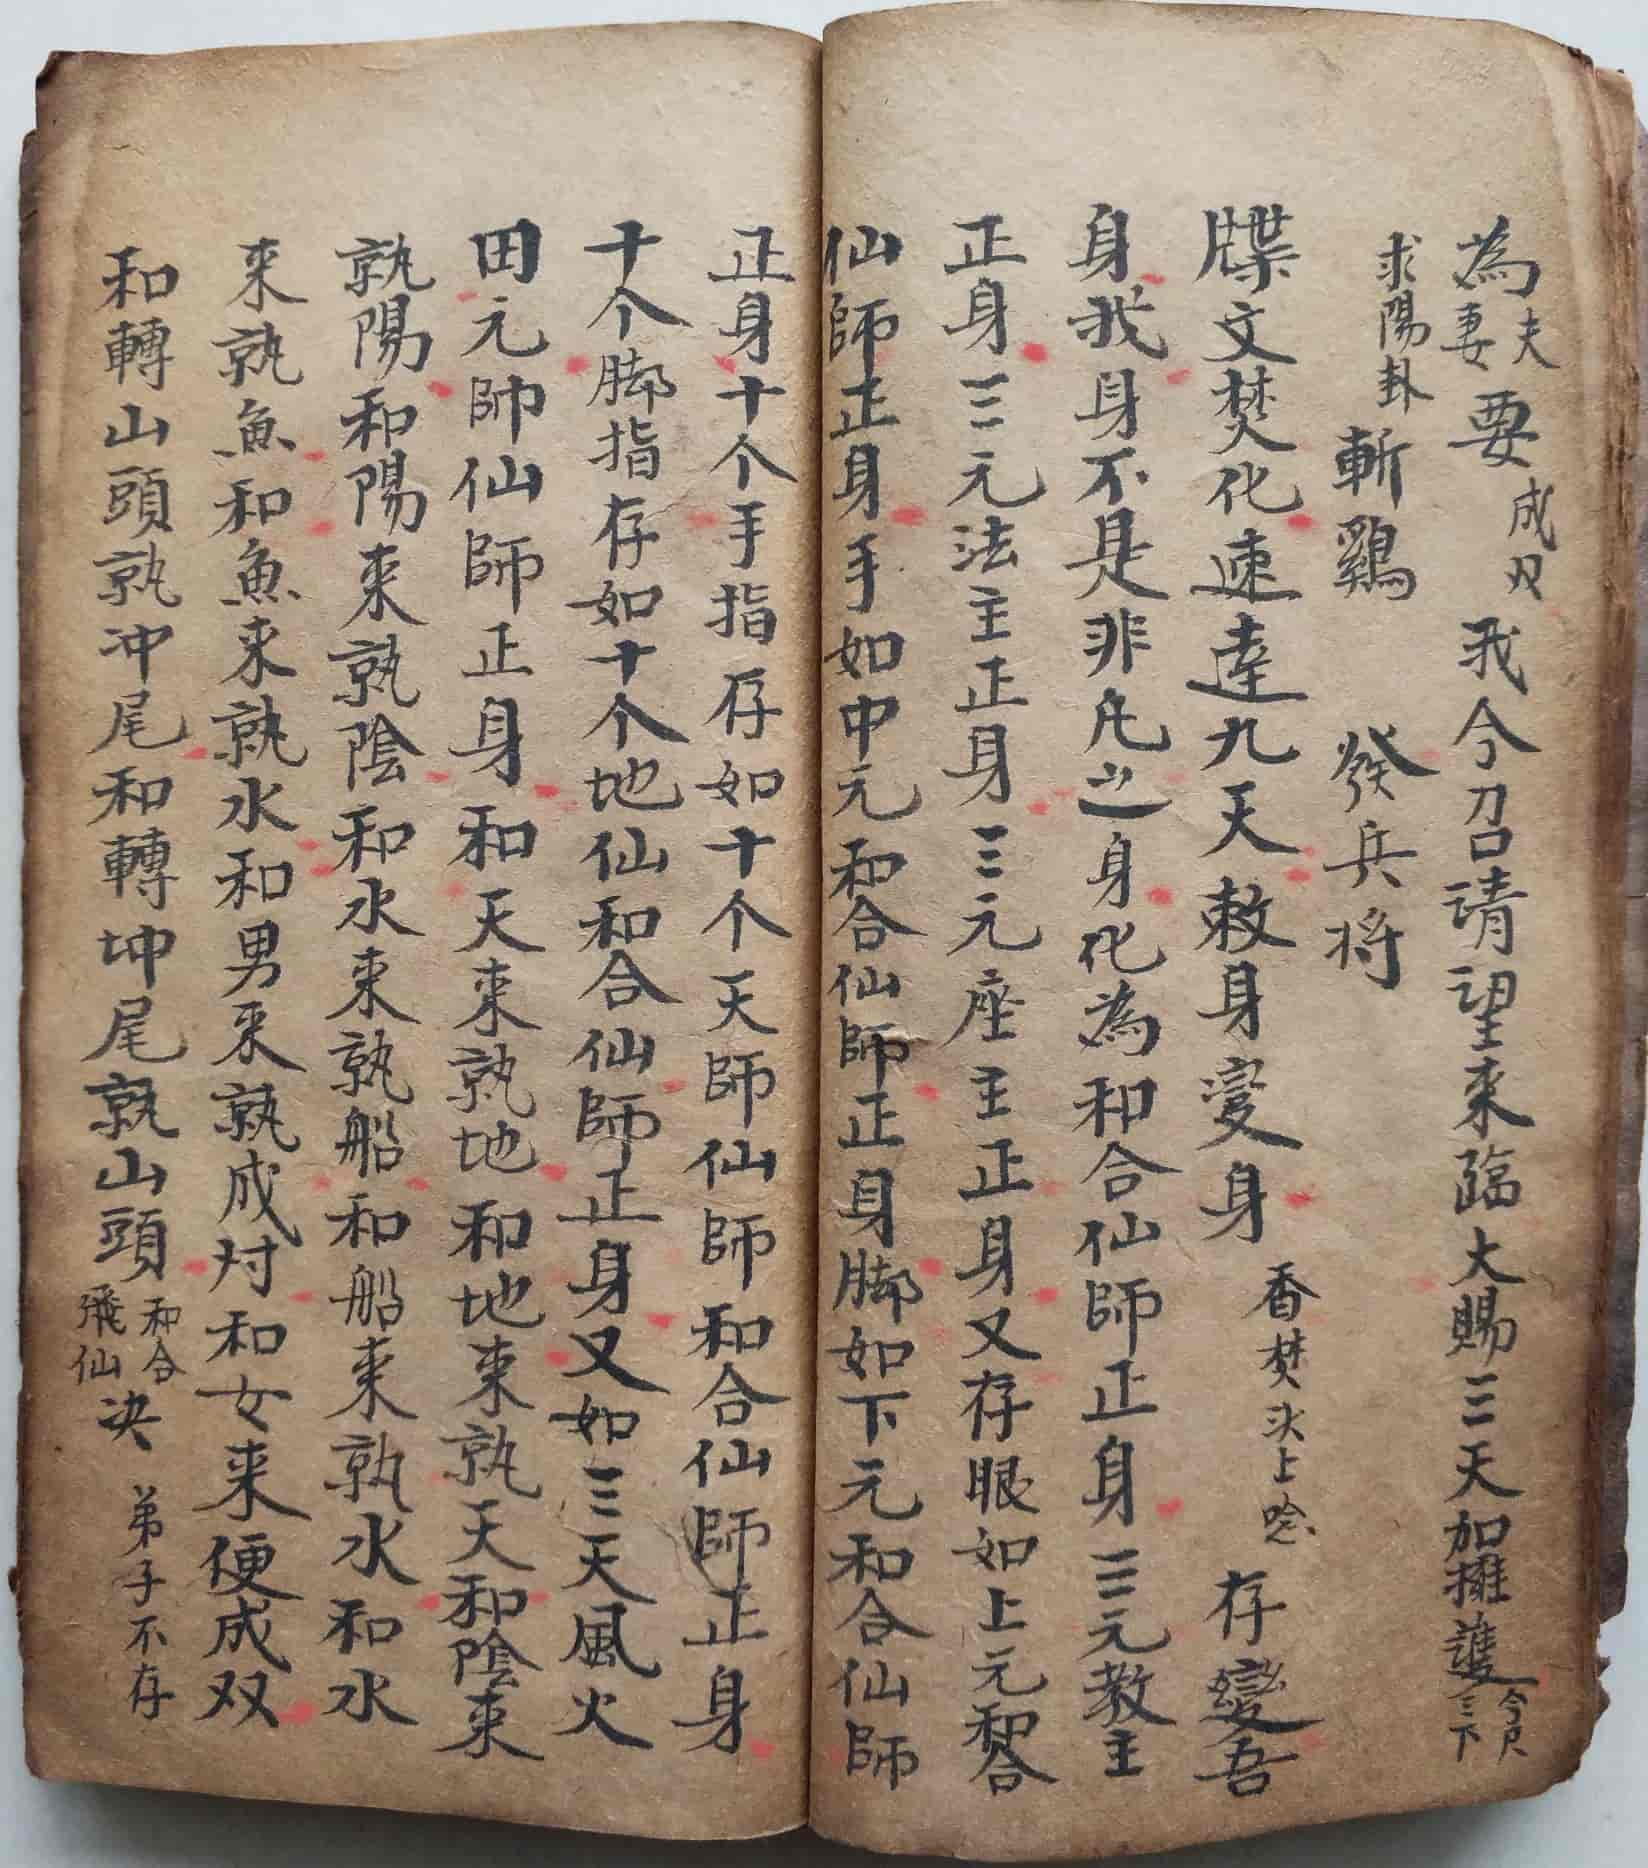 為夫妻要成双我今召请望来臨大赐三天加擁護令尺三下
求陽卦斬鷄發兵将
牒文焚化速達九天敕身変身香焚头上唸存變吾
身我身不是非凡之身化為和合仙師正身三元教主
正身三元法主正身三元座主正身又存眼如上元和合
仙師正身手如中元和合仙師正身脚如下元和合仙師
正身十个手指存如十个天師仙師和合仙師正身
十个脚指存如十个地仙和合仙師正身又如三天風火
田元帅仙師正身和天来孰地和地来孰天和陰来
孰陽和陽来孰陰和水来孰船和船来孰水和水
来孰魚和魚来孰水和男来孰成対和女来便成双
和轉山頭孰冲尾和轉坤尾孰山頭和合飛仙决弟子不存